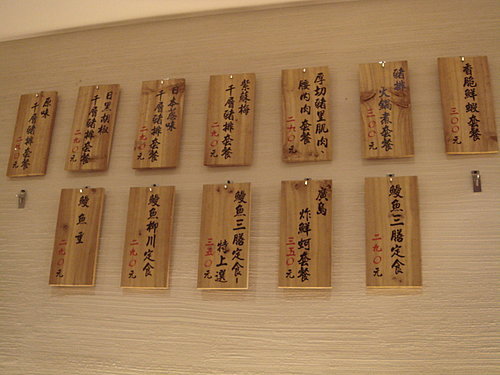 原味
千層豬排套餐
二九〇元
日里胡椒
千層豬排套餐
二九〇元
日本蒜味
千層豬排套餐
二九〇元
紫蘇梅
千層豬排套餐
二九〇元
厚切豬里肌肉
腰肉肉套餐
二八〇元
豬排
火鍋煮套餐
二〇〇元
香脆鮮蝦套餐
三〇〇元
鰻魚重
二九〇元
鰻魚柳川定食
二九〇元
鰻魚三膳定食
特上選
三五〇元
廣島
炸鮮蚵套餐
三五〇元
鰻魚三膳定食
二九〇元